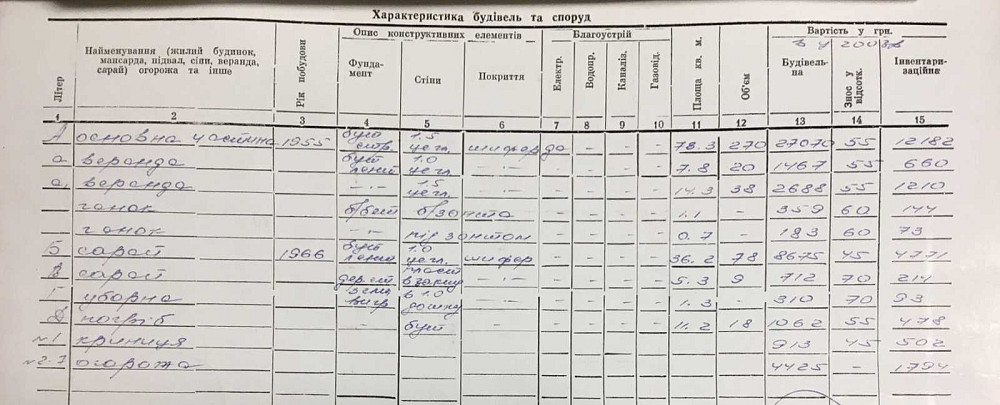 Характеристика будівель та споруд
Літер
Найменування (жилий будинок, мансарда, підвал, сіни, веранда, сарай) огорожа та інше
Рік побудови
Опис конструктивних елементів
Фунда-мент
Стіни
Покриття
Благоустрій
Електр.
Водопр.
Каналіз.
Газовід.
Площа кв. м.
Об'єм
Вартість у грн.
Будівель-на
Знос у відсотк.
Інвентари-заційна
1 2 3 4 5 6 7 8 9 10 11 12 13 14 15
А основна частина 1955 бут 1.5 цегл. шифер да - - - 78.3 270 27070 55 12182
а веранда бут 1.0 цегл. -·- - - - - 7.8 20 1467 55 660
а, веранда -·- 1.5 цегл. -·- - - - - 14.3 38 2688 55 1210
ганок б/бет б/зонта - - - - 1.1 - 359 60 144
ганок -·- під зонтом - - - - 0.7 - 183 60 73
Б сарай 1966 бут 1.0 цегл. шифер - - - - 36.2 78 8675 45 4771
В сарай -·- - - - - 5.3 9 712 70 214
Г уборна в 1.0 дошку - - - - 1.3 - 310 70 93
Д погріб - бут - - - - 11.2 18 1062 55 478
№1 криниця 913 45 502
№2-7 огорожа 4425 - 1794